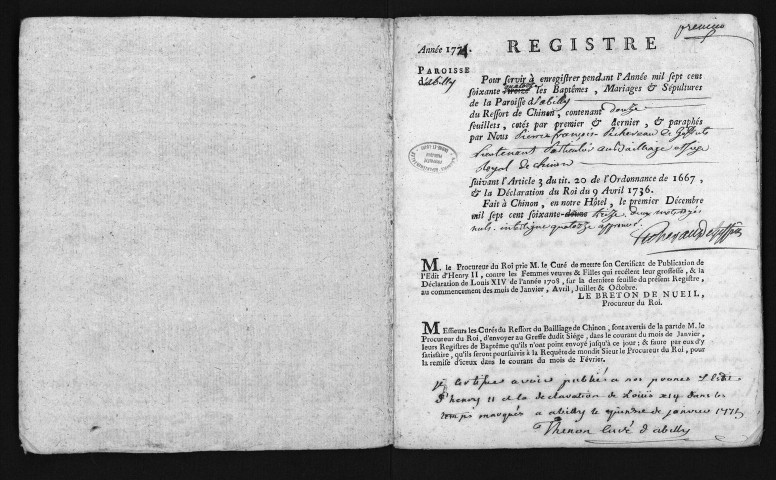 premier
Année 1774. REGISTRE
PAROISSE
d'abilly
Pour servir à enregistrer pendant l'Année mil sept cent
quatorze
soixante treize les Baptêmes, Mariages & Sépultures
de la Paroisse d'abilly
du Ressort de Chinon, contenant douze
feuillets, cotés par premier & dernier, & paraphés
par Nous Pierre françois Pichereau de
Lieutenant Particulier au Bailliage et siege
Royal de chinon
suivant l'Article 3 du tit. 20 de l'Ordonnance de 1667,
& la Déclaration du Roi du 9 Avril 1736.
Fait à Chinon, en notre Hôtel, le premier Décembre
mil sept cent soixante treize deux mots rayés
nuls. interligne quatorze approuvé.
M. le Procureur du Roi prie M. le Curé de mettre son Certificat de Publication de
l'Edit d'Henry II, contre les Femmes veuves & Filles qui recélent leur grossesse, & la
Déclaration de Louis XIV de l'année 1708, sur la derniere feuille du présent Registre,
au commencement des mois de Janvier, Avril, Juillet & Octobre.
LE BRETON DE NUEIL,
Procureur du Roi.
MEssieurs les Curés du Ressort du Bailliage de Chinon, sont avertis de la part de M. le
Procureur du Roi, d'envoyer au Greffe dudit Siége, dans le courant du mois de Janvier,
leurs Registres de Baptême qu'ils n'ont point envoyé jusqu'à ce jour; & faute par eux d'y
satisfaire, qu'ils seront poursuivis à la Requête de mondit Sieur le Procureur du Roi, pour
la remise d'iceux dans le courant du mois de Février.
je certifie avoir publié a nos prones l'edit
d'henry II et la declaration de Louïs x14 dans les
temps marqués a abilly le quinze de janvier 1775
Thenon curé d'abilly